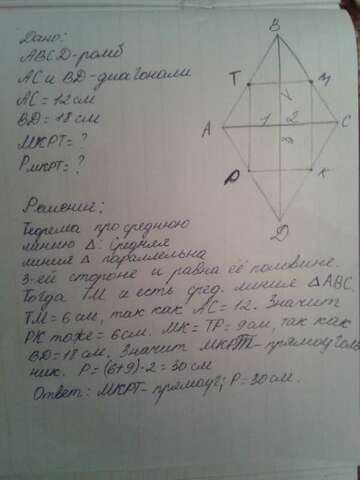 Дано:
ABCD-ромб
AC и BD-диагонали
AC = 12 см
BD = 18 см
МКРТ = ?
Рмкрт = ?
B
T
M
A
1 2
C
8
P
K
D
Решение:
Теорема про среднюю
линию Δ: средняя
линия Δ параллельна
3-ей стороне и равна её половине.
Тогда ТМ и есть сред. линия ΔАВС.
ТМ = 6 см, так как АС = 12. Значит
РК тоже = 6 см. МК = ТР = 9 см, так как
BD = 18 см. Значит МКРТ - прямоуголь
ник. Р = (6+9)·2 = 30 см
Ответ: МКРТ - прямоуг; Р = 30 см.